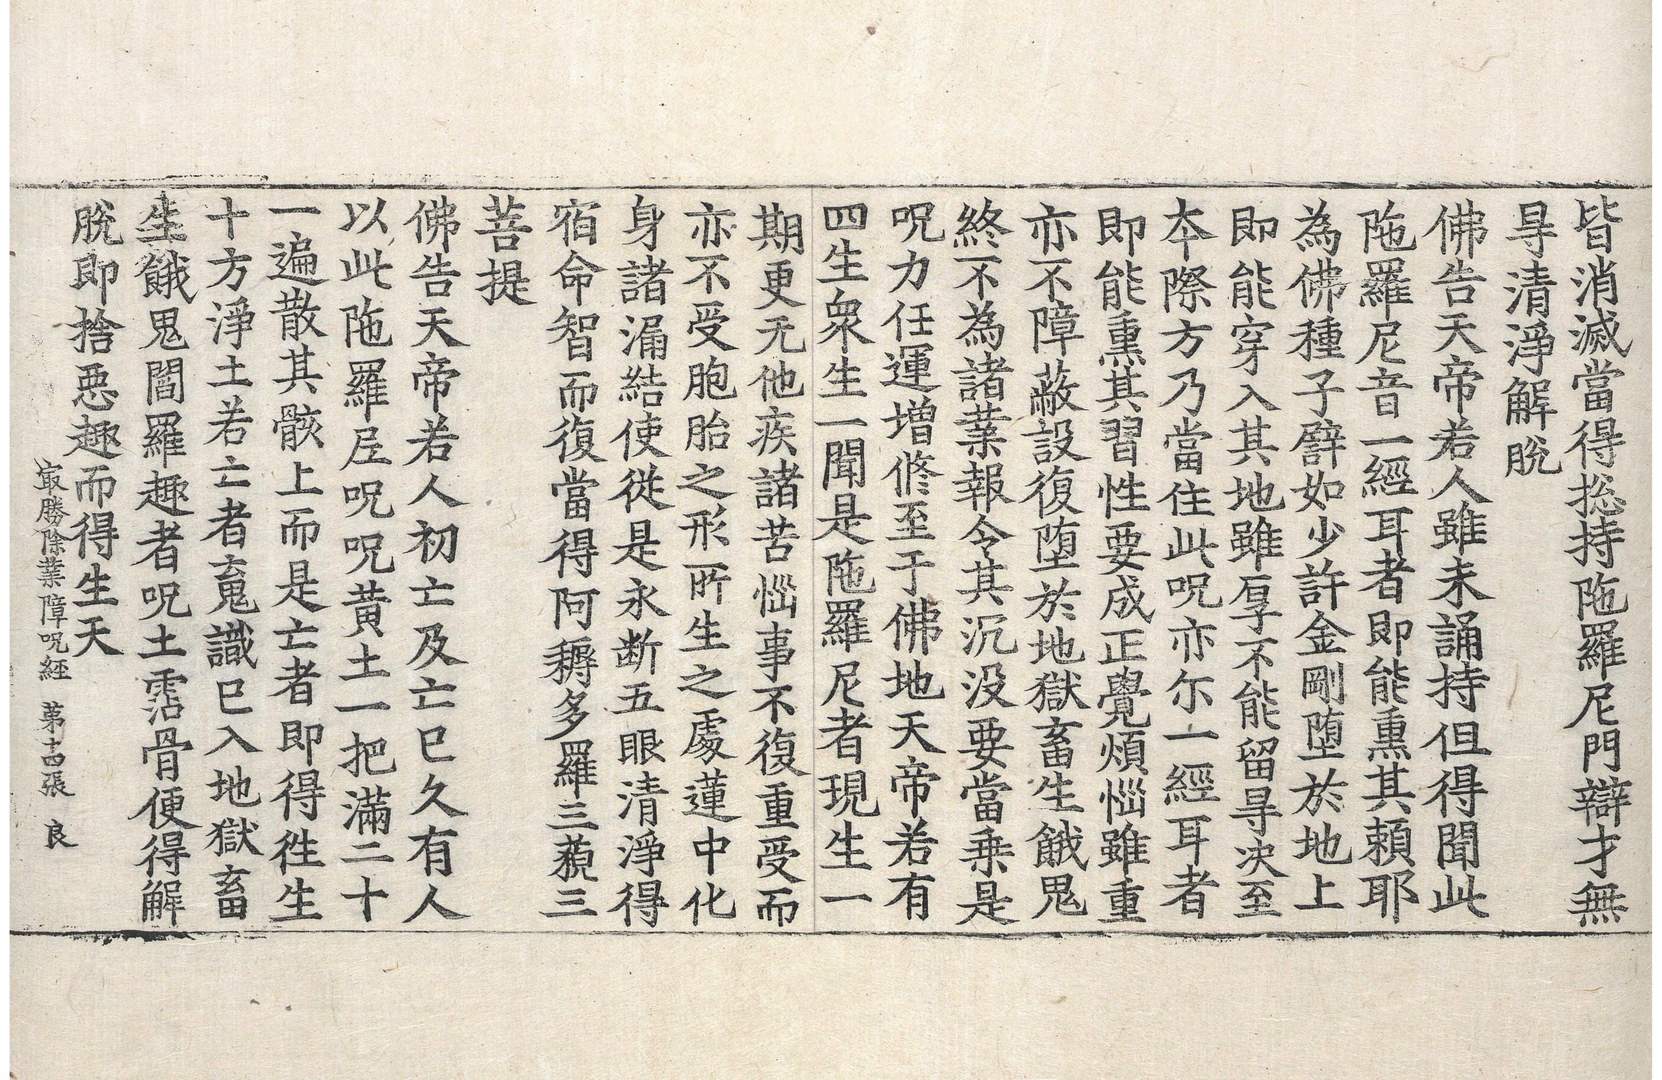 皆消滅當得捴持陁羅尼門辯才無
㝵清淨解脫
佛告天帝若人雖未誦持但得聞此
陁羅尼音一經耳者即能熏其頼耶
為佛種子譬如少許金剛堕於地上
即能穿入其地雖厚不能留㝵决至
夲際方乃當住此呪亦尔一經耳者
即能熏其習性要成正覺煩惱雖重
亦不障蔽設復堕於地獄畜生餓鬼
終不為諸業報令其沉没要當乗是
呪力任運増修至于佛地天帝若有
四生衆生一聞是陁羅尼者現生一
期更无他疾諸苦惱事不復重受而
亦不受胞胎之形所生之處蓮中化
身諸漏結使從是永断五眼清淨得
宿命智而復當得阿耨多羅三藐三
菩提
佛告天帝若人初亡及亡巳久有人
以此陁羅尼呪呪黄土一把滿二十
一遍散其骸上而是亡者即得徃生
十方淨土若亡者䰟識巳入地獄畜
生餓鬼閻羅趣者呪土霑骨便得解
脫即捨惡趣而得生天
㝡勝除業障呪經 苐十四張 良